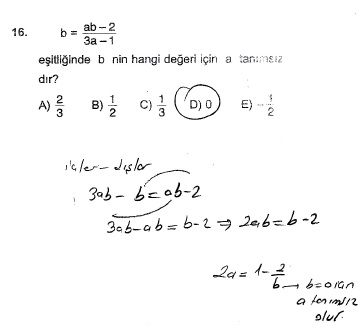 16. b = ab – 2 / 3a – 1
eşitliğinde b nin hangi değeri için a tanımsız
dır?
A) 2/3 B) 1/2 C) 1/3 D) 0 E) –1/2
içler – dışlar
3ab – b = ab – 2
3ab – ab = b – 2 ⇒ 2ab = b – 2
2a = 1 – 2/b → b=0 için
a tanımsız
olur.